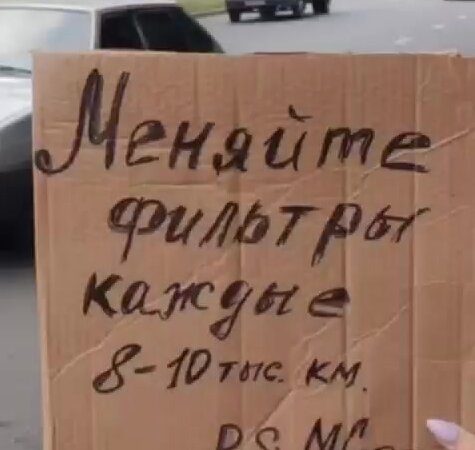 Меняйте
фильтры
каждые
8-10 тыс. км.
P.S.